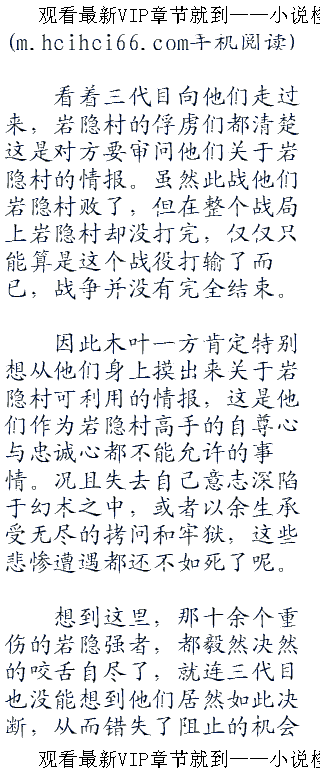 观看最新VIP章节就到——小说
(m.hcihci66.com手机阅读)
看着三代目向他们走过
来，岩隐村的俘虏们都清楚
这是对方要审问他们关于岩
隐村的情报。虽然此战他们
岩隐村败了，但在整个战局
上岩隐村却没打完，仅仅只
能算是这个战役打输了而
已，战争并没有完全结束。
因此木叶一方肯定特别
想从他们身上摸出来关于岩
隐村可利用的情报，这是他
们作为岩隐村高手的自尊心
与忠诚心都不能允许的事
情。况且失去自己意志深陷
于幻术之中，或者以余生承
受无尽的拷问和牢狱，这些
悲惨遭遇都还不如死了呢。
想到这里，那十余个重
伤的岩隐强者，都毅然决然
的咬舌自尽了，就连三代目
也没能想到他们居然如此决
断，从而错失了阻止的机会
观看最新VIP章节就到——小说